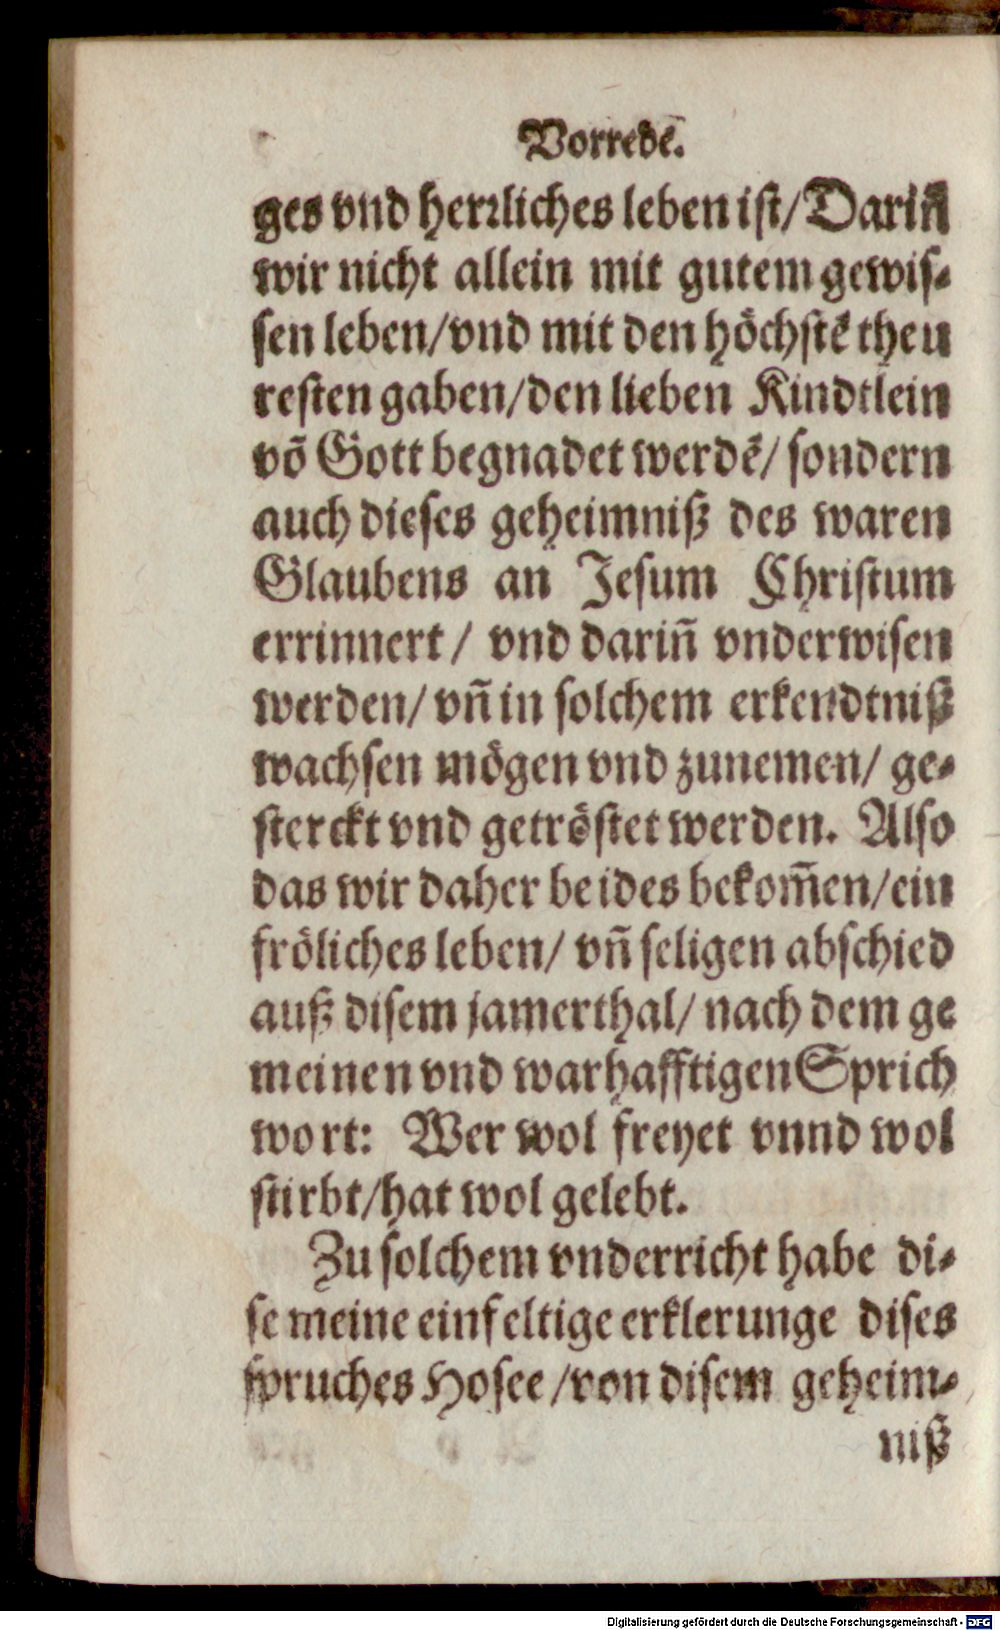 Vorrede.
ges vnd herrliches leben ist/ Dariñ
wir nicht allein mit gutem gewis-
sen leben/ vnd mit den höchstẽ theu
resten gaben/ den lieben Kindtlein
võ Gott begnadet werdẽ/ sondern
auch dieses geheimniß des waren
Glaubens an Jesum Christum
errinnert/ vnd dariñ vnderwisen
werden/ vñ in solchem erkendtniß
wachsen mögen vnd zunemen/ ge-
sterckt vnd getröstet werden. Also
das wir daher beides bekom̃en/ ein
fröliches leben/ vñ seligen abschied
auß disem jamerthal/ nach dem ge
meinen vnd warhafftigen Sprich
wort: Wer wol freyet vnnd wol
stirbt/ hat wol gelebt.
Zu solchem vnderricht habe di-
se meine einfeltige erklerunge dises
spruches Hosee/ von disem geheim-
niß
Digitalisierung gefördert durch die Deutsche Forschungsgemeinschaft - DFG